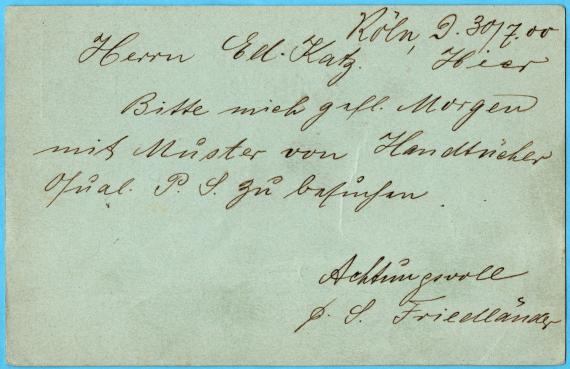 Köln, D. 30/7.00
Herrn Ed. Katz. Hier
Bitte mich gefl. Morgen
mit Muster von Handtücher
Qual. P. S. zu besuchen
Achtungsvoll
p. S. Friedländer